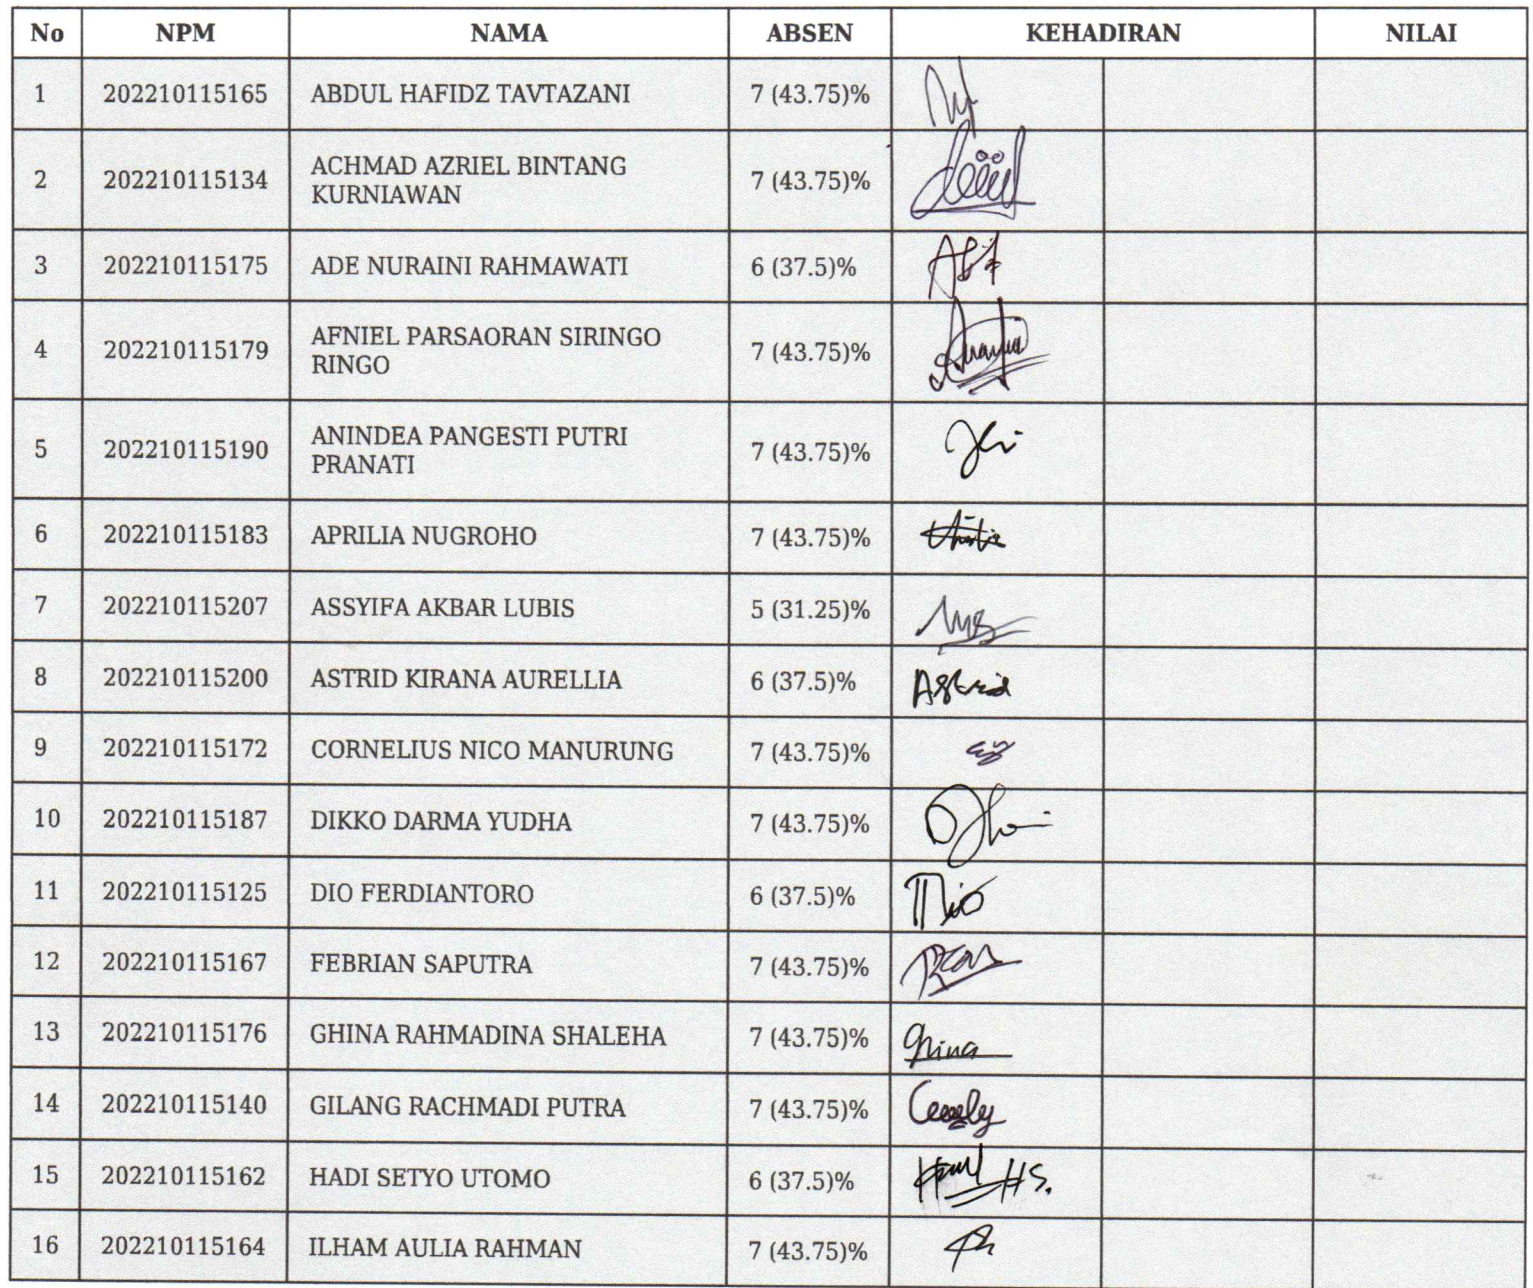 No NPM NAMA ABSEN KEHADIRAN NILAI
1 202210115165 ABDUL HAFIDZ TAVTAZANI 7 (43.75)%
2 202210115134 ACHMAD AZRIEL BINTANG KURNIAWAN 7 (43.75)%
3 202210115175 ADE NURAINI RAHMAWATI 6 (37.5)%
4 202210115179 AFNIEL PARSAORAN SIRINGO RINGO 7 (43.75)%
5 202210115190 ANINDEA PANGESTI PUTRI PRANATI 7 (43.75)%
6 202210115183 APRILIA NUGROHO 7 (43.75)%
7 202210115207 ASSYIFA AKBAR LUBIS 5 (31.25)%
8 202210115200 ASTRID KIRANA AURELLIA 6 (37.5)% Astrid
9 202210115172 CORNELIUS NICO MANURUNG 7 (43.75)%
10 202210115187 DIKKO DARMA YUDHA 7 (43.75)%
11 202210115125 DIO FERDIANTORO 6 (37.5)%
12 202210115167 FEBRIAN SAPUTRA 7 (43.75)%
13 202210115176 GHINA RAHMADINA SHALEHA 7 (43.75)% Ghina
14 202210115140 GILANG RACHMADI PUTRA 7 (43.75)%
15 202210115162 HADI SETYO UTOMO 6 (37.5)% HS.
16 202210115164 ILHAM AULIA RAHMAN 7 (43.75)%